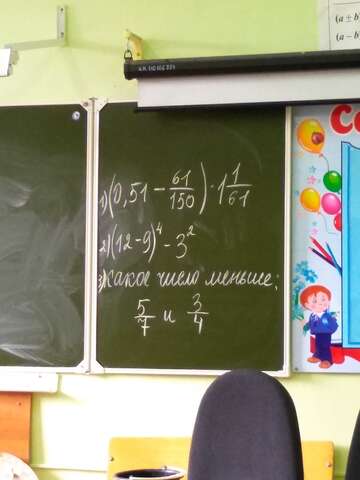 (a ± b)
(a − b)
Со
1) (0,51 − 61/150) · 1 1/61
2) (12 − 9)⁴ − 3²
3) Какое число меньше:
5/7 и 3/4